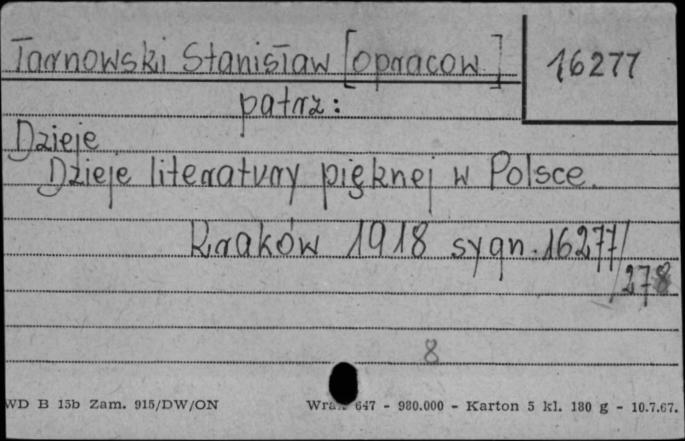 Tarnowski Stanisław [opracow.] 16277
patrz:
Dzieje
Dzieje literatury pięknej w Polsce.
Kraków 1918 sygn. 16277/
/278
8
WD B 15b Zam. 915/DW/ON 647 - 980.000 - Karton 5 kl. 180 g - 10.7.67.